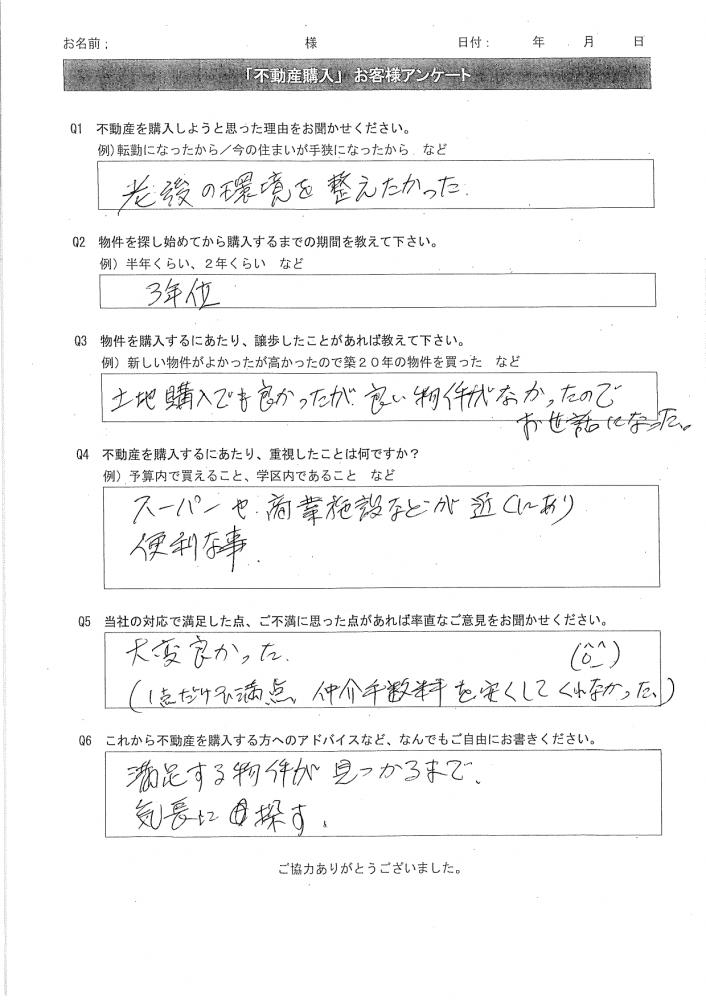 お名前； 様 日付： 年 月 日
「不動産購入」お客様アンケート
Q1 不動産を購入しようと思った理由をお聞かせください。
例）転勤になったから／今の住まいが手狭になったから など
老後の環境を整えたかった.
Q2 物件を探し始めてから購入するまでの期間を教えて下さい。
例）半年くらい、２年くらい など
3年位
Q3 物件を購入するにあたり、譲歩したことがあれば教えて下さい。
例）新しい物件がよかったが高かったので築２０年の物件を買った など
土地購入でも良かったが、良い物件がなかったので
お世話になった。
Q4 不動産を購入するにあたり、重視したことは何ですか？
例）予算内で買えること、学区内であること など
スーパーや商業施設などが近くにあり
便利な事.
Q5 当社の対応で満足した点、ご不満に思った点があれば率直なご意見をお聞かせください。
大変良かった. (^o^)
(1点だけ不満点、仲介手数料を安くしてくれなかった、)
Q6 これから不動産を購入する方へのアドバイスなど、なんでもご自由にお書きください。
満足する物件が見つかるまで、
気長に探す.
ご協力ありがとうございました。